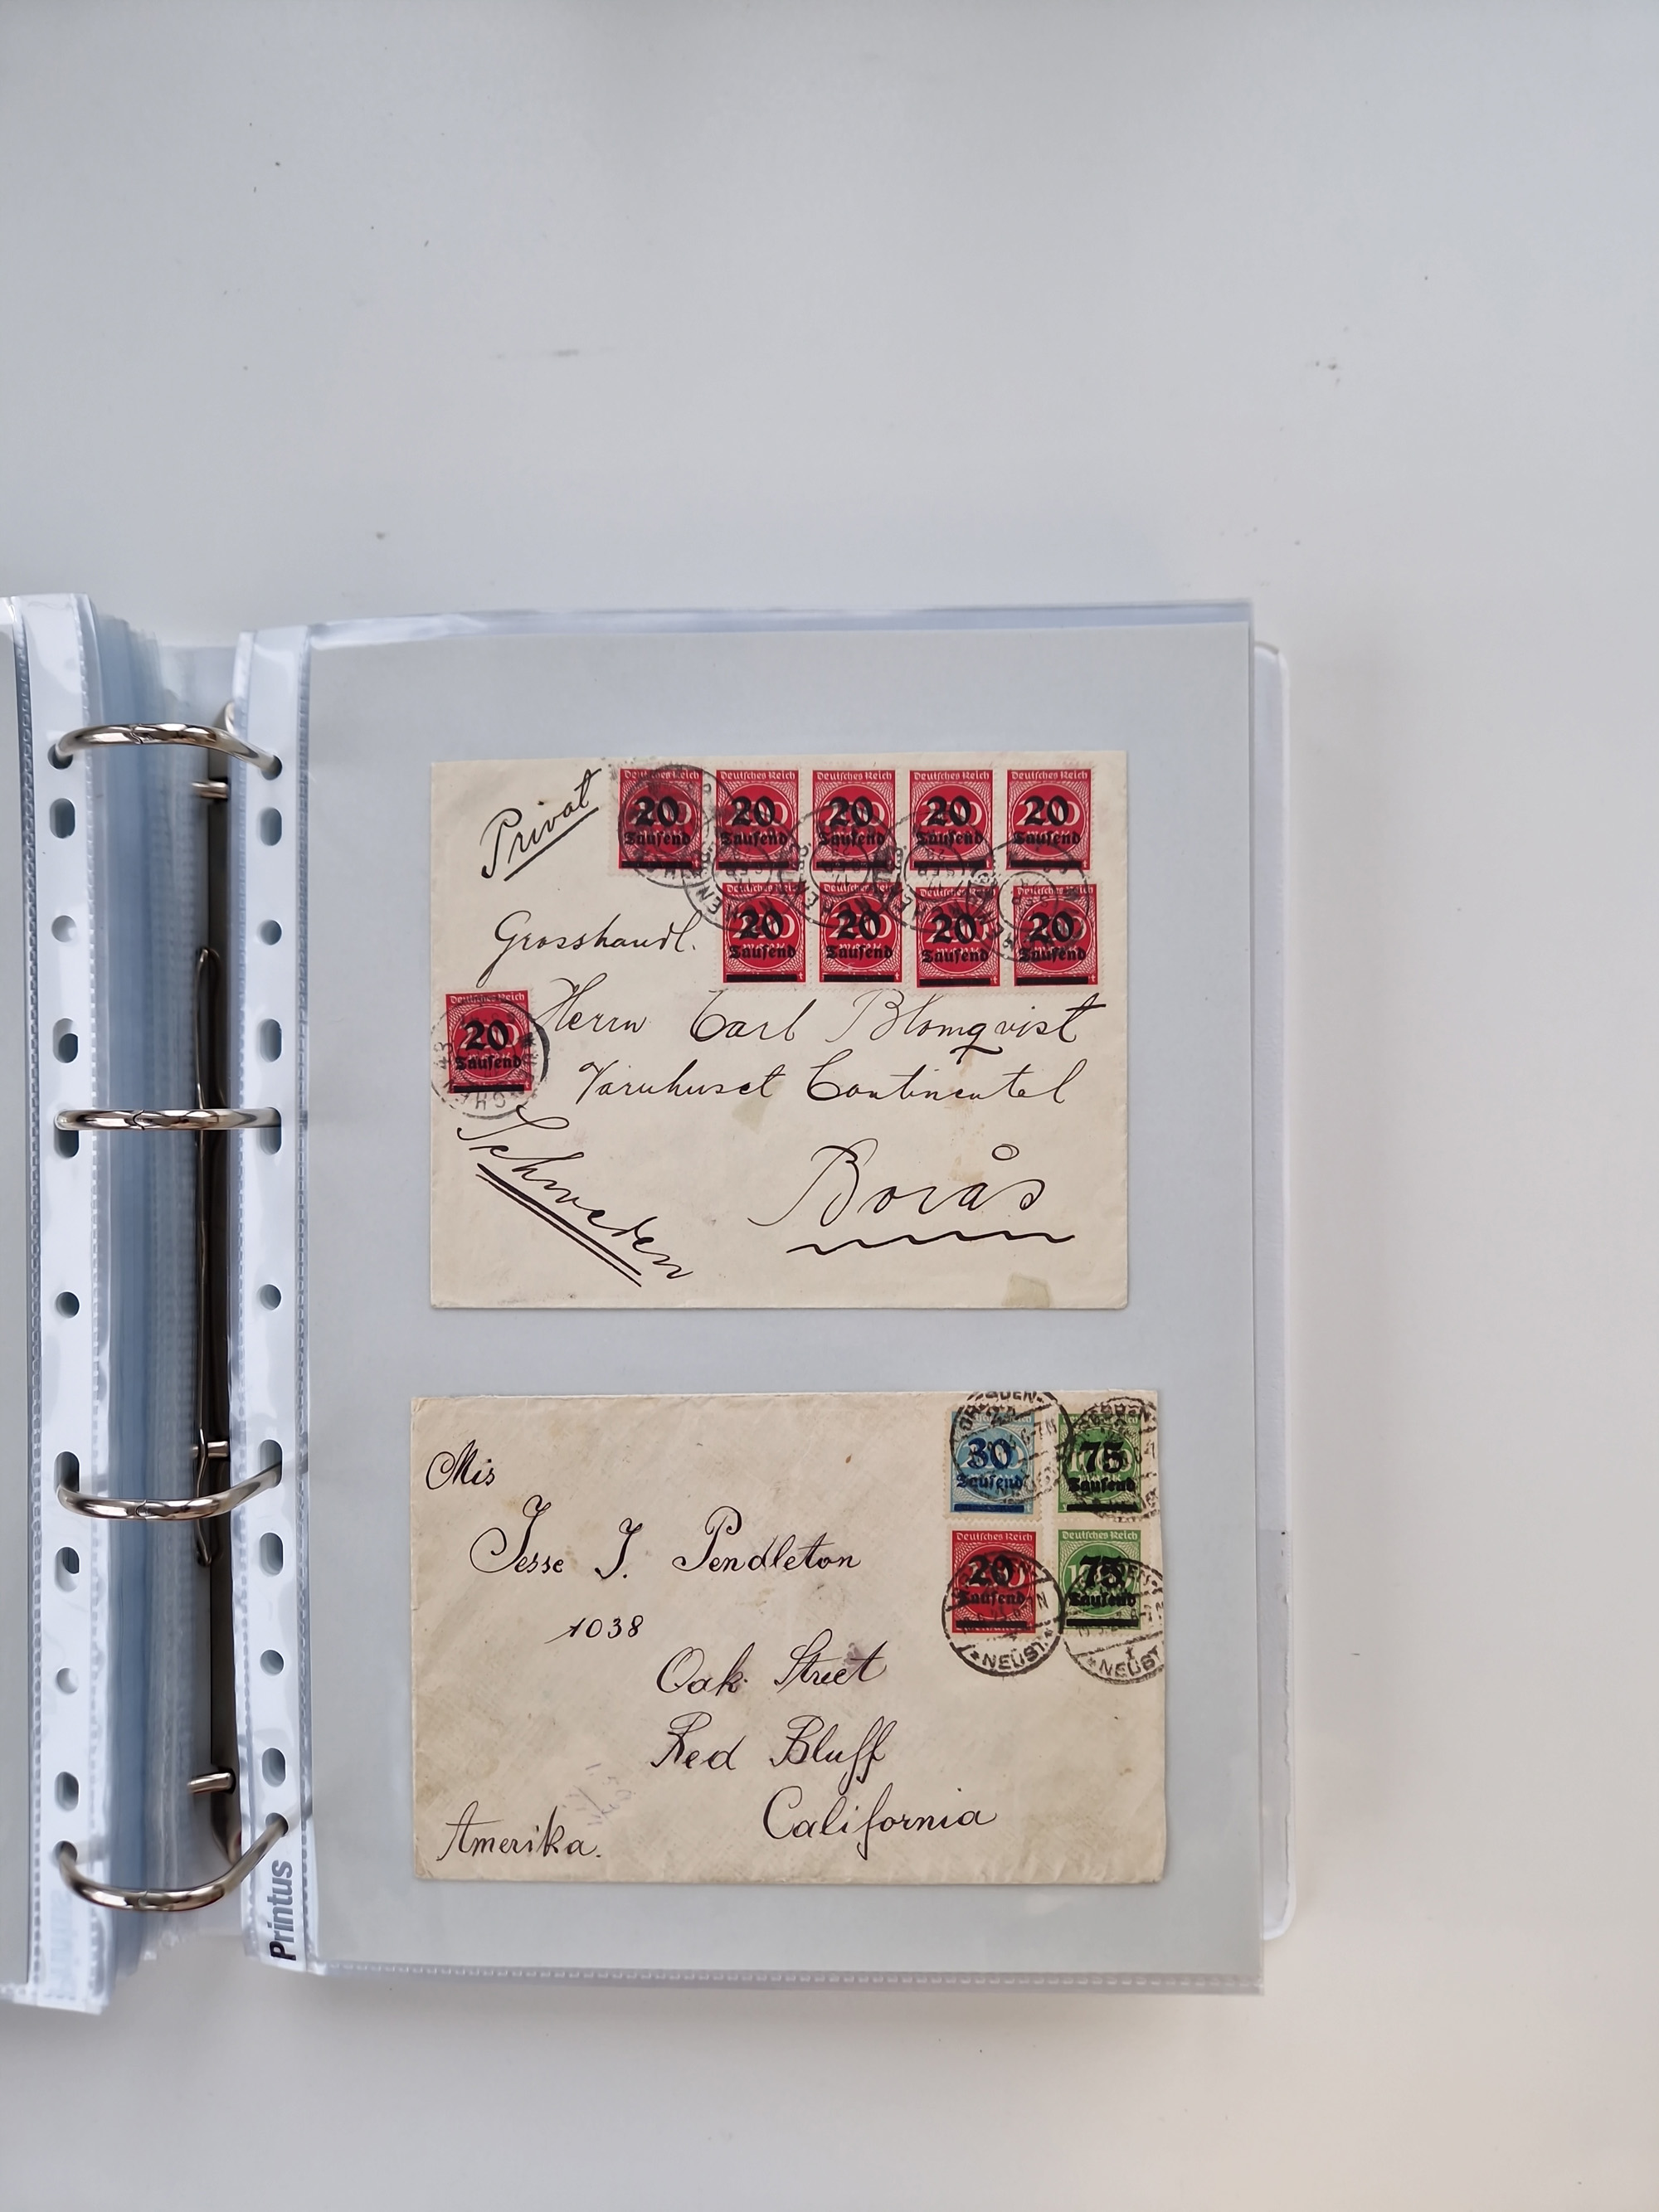 Privat
Deutsches Reich Deutsches Reich Deutsches Reich Deutsches Reich Deutsches Reich
20 20 20 20 20
Tausend Tausend Tausend Tausend Tausend
20 20 20 20
Tausend Tausend Tausend Tausend
Grosshandl.
Deutsches Reich
20
Tausend
Herrn Carl Blomqvist
Varuhuset Continental
Schweden
Borås
Mis
Jesse J. Pendleton
1038
Oak Street
Red Bluff
California
Amerika.
30 75
Tausend Tausend
Deutsches Reich Deutsches Reich
20 75
Tausend Tausend
*NEUST
*NEUST
Printus